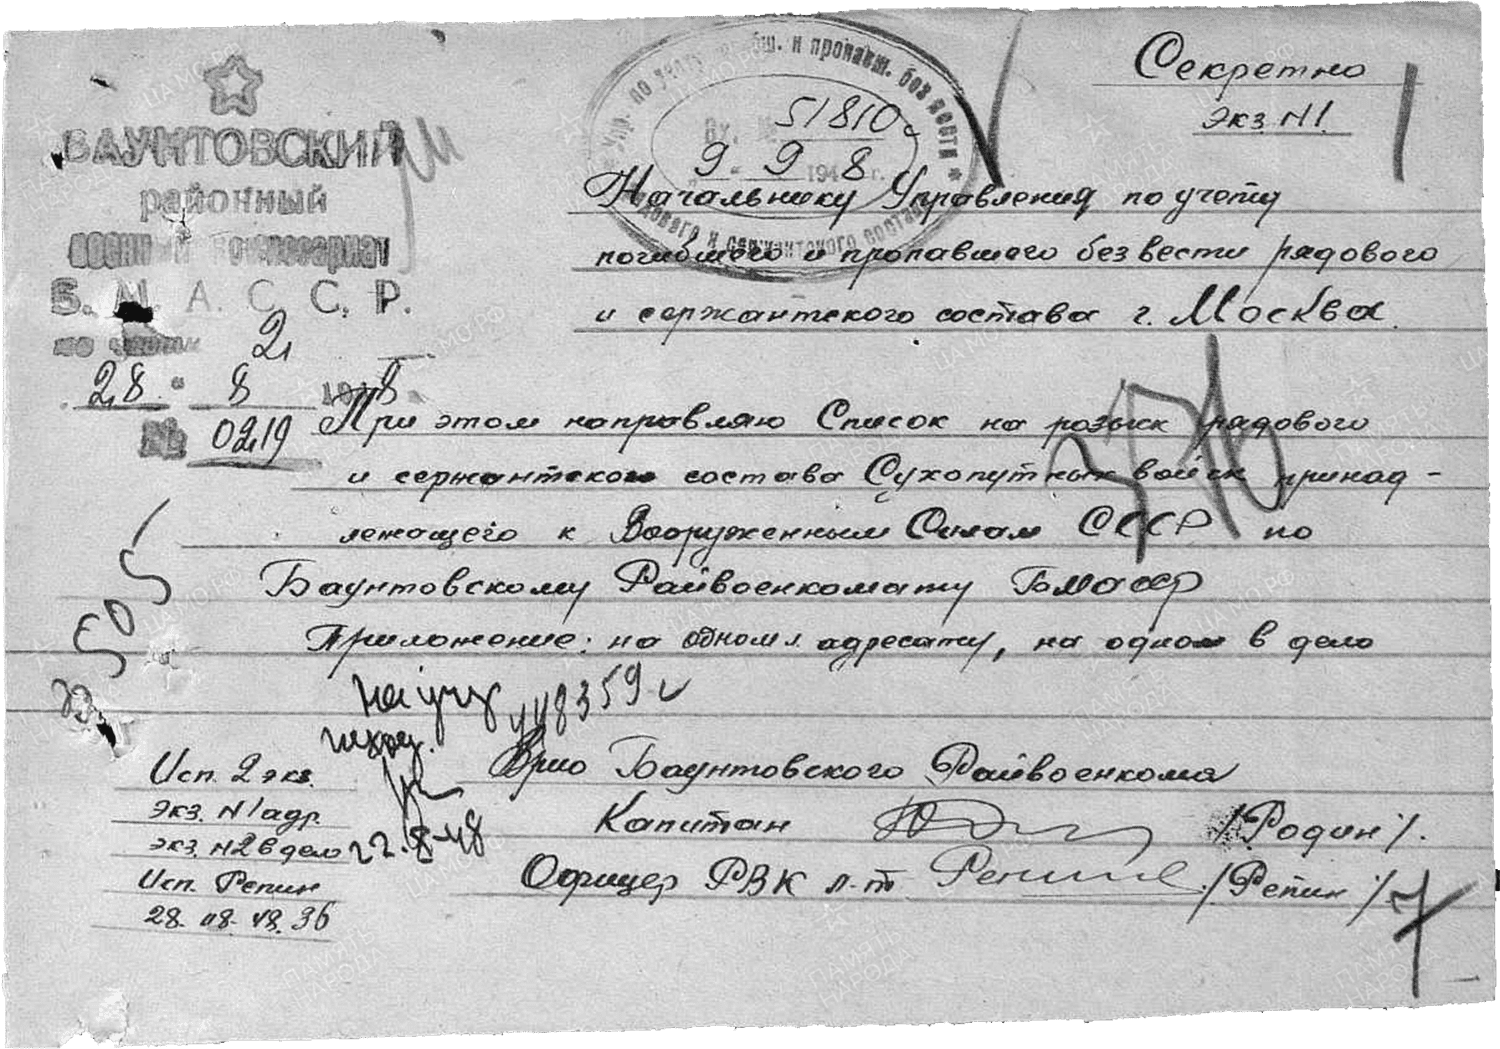 Секретно
Экз. N1.
БАУНТОВСКИЙ
районный
военный комиссариат
Б. М. А. С. С. Р.
2,
28 " 8 1948
№ 0219
Упр. по учету погибш. и пропавш. без вести
рядового и сержантского состава
Вх. № 51810
9 - 9 1948 г.
Начальнику Управления по учету
погибшего и пропавшего без вести рядового
и сержантского состава г. Москва.
При этом направляю Список на розыск рядового
и сержантского состава Сухопутных войск принад-
лежащего к Вооруженным Силам СССР по
Баунтовскому Райвоенкомату БМАССР
Приложение: на одном л. адресату, на одном в дело
48359
Врио Баунтовского Райвоенкома
Капитан /Родин/.
Офицер РВК л-т Репин /Репин/
Исп. 2 экз.
Экз. N1 адр.
экз. N2 в дело
Исп. Репин
28. 08. 48.
7
ПАМЯТЬ НАРОДА
ЦАМО.РФ